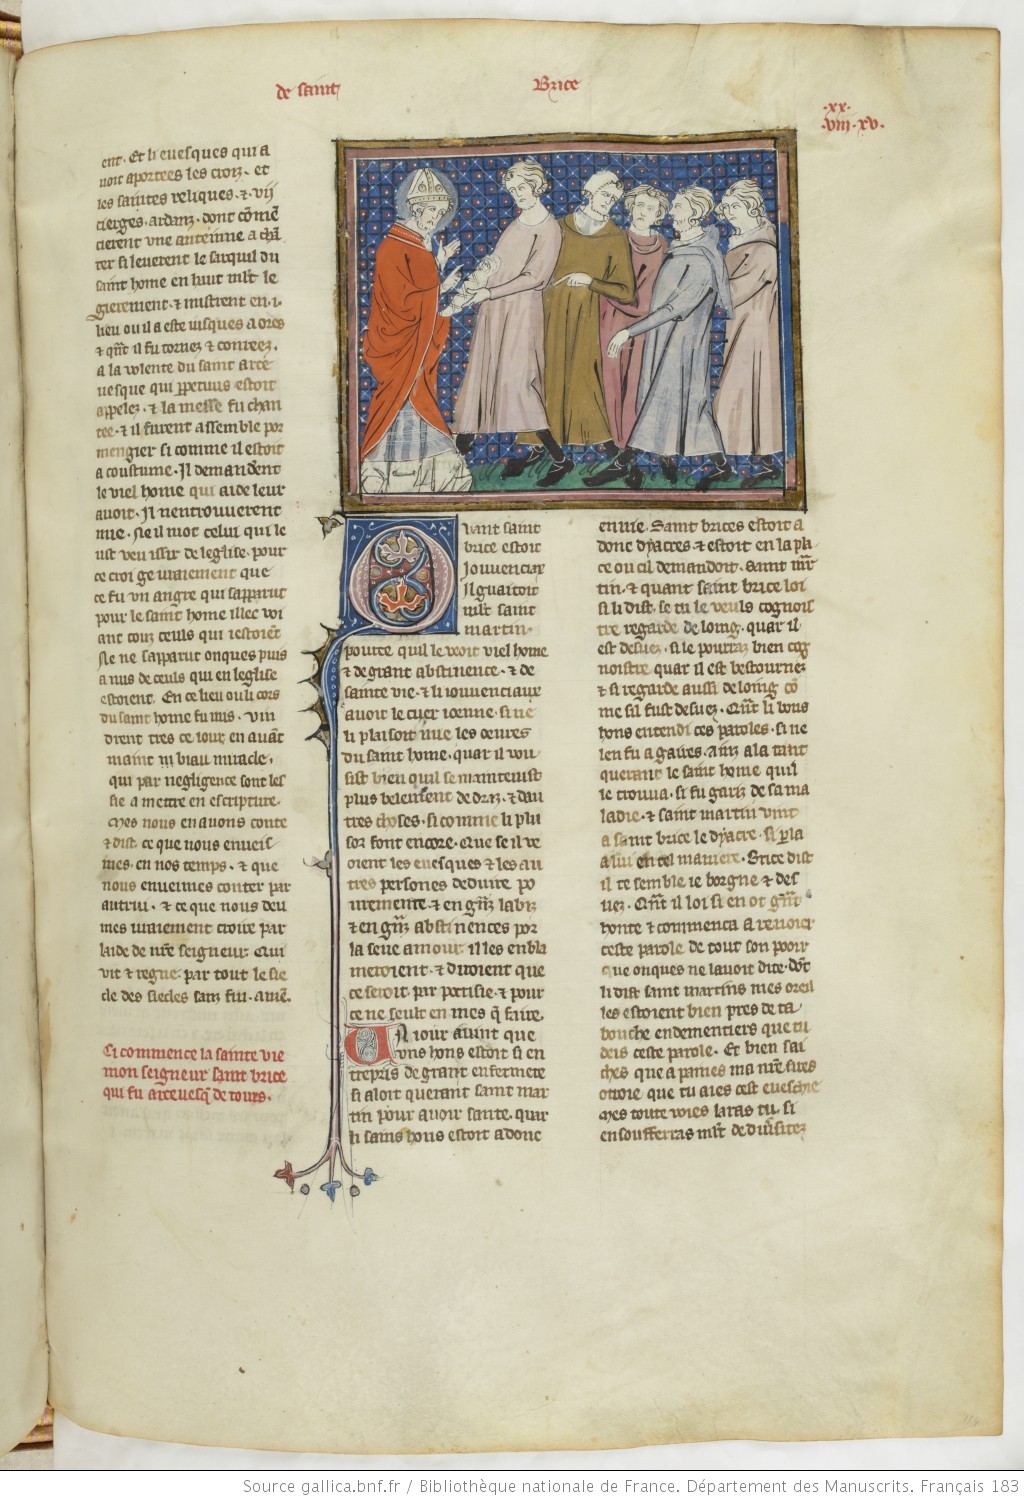 de saint Brice
.xx.
.viii.xv.
ent. Et li euesques qui a
uoit aportees les croiz. et
les saintes reliques. &. vij
cierges. ardanz. dont comē
cierent vne antienne a chā
ter si leuerent le sarquil du
saint home en haut mlt le
gierement. & mistrent en .i.
lieu ou il a este iusques a ores
& qnt il fu tornez & conreez.
a la volente du saint arce
uesque qui ppetuus estoit
appelez. & la messe fu chan
tee. & il furent assemble por
mengier si comme il estoit
a coustume. Il demandent
le viel home qui aide leur
auoit. Il nen trouuerent
mie. Ne il niot celui qui le
ust veu issir de leglise. pour
ce croi ge uraiement que
ce fu vn angre qui sapparut
pour le saint home illec voi
ant touz ceuls qui i estoiēt
Ne ne sapparut onques puis
a nus de ceuls qui en leglise
estoient. En ce lieu ou li cors
du saint home fu mis. vin
drent tres ce iour en auāt
maint biau miracle.
qui par negligence sont les
sie a mettre en escripture.
Mes nous en auons conte
& dist. ce que nous enueis
mes. en nos temps. & que
nous enueimes conter par
autrui. & ce que nous deu
mes uraiement croire par
laide de nre seigneur. Qui
vit & regne. par tout le sie
cle des siecles sanz fin. amē.
Ci commence la sainte vie
mon seigneur saint brice
qui fu arceuesq de tours.
Qvant saint
brice estoit
iouuenciax
Il guaitoit
mlt saint
martin.
pource quil le veoit viel home
& de grant abstinence. & de
sainte vie. & li iouuenciaux
auoit le cuer ioenne. si ne
li plaisoit mie les oeures
du saint home. quar il vou
sist bien quil se maintenist
plus belement de draz. & dau
tres choses. si comme li plu
sor font encore. Que se il ve
oient les euesques & les au
tres persones deduire po
urement. & en gnz labrz
& en gnz abstinences por
la seue amour. il les enbla
meroient. & diroient que
ce seroit par portisie. & pour
ce ne seult en mes q̄ faire.
Vn iour auint que
vns hons estoit si en
trepris de grant enfermete
si aloit querant saint mar
tin pour auoir sante. quar
li sains hons estoit adonc
en uie. Saint brices estoit a
donc dyacres. & estoit en la pla
ce ou cil demandoit. saint mr
tin. & quant saint brice loi
si li dist. se tu le veuls cognois
tre regarde de loing. quar il
est desuez. si le pourraz bien cog
noistre quar il est bestournez
& si regarde aussi de loing cō
me sil fust desuez. Qnt li bons
hons entendi ces paroles. si ne
len fu a gaires. ainz ala tant
querant le saint home quil
le trouua. si fu gariz de sa ma
ladie. & saint martin vint
a saint brice le dyacre. si pla
a lui en tel maniere. Brice dist
il te semble ie borgne & des
uez. Qnt il loi si en ot gnt
honte & commenca a renoier
ceste parole de tout son pooir
que onques ne lauoit dite. dōt
li dist saint martins mes oreil
les estoient bien pres de ta
bouche endementiers que tu
deis ceste parole. Et bien sai
ches que a paines ma nre sires
ottroie que tu aies cest eueschie
Mes toute voies laras tu. si
en soufferras mlt de diuersitez
Source gallica.bnf.fr / Bibliothèque nationale de France. Département des Manuscrits. Français 183